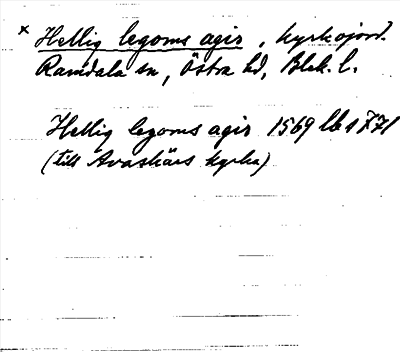 × Hellig legoms agir, kyrkojord.
Ramdala sn, Östra hd, Blek. l.
Hellig legoms agir 1569 lb 1 771
(till Avaskärs kyrka)